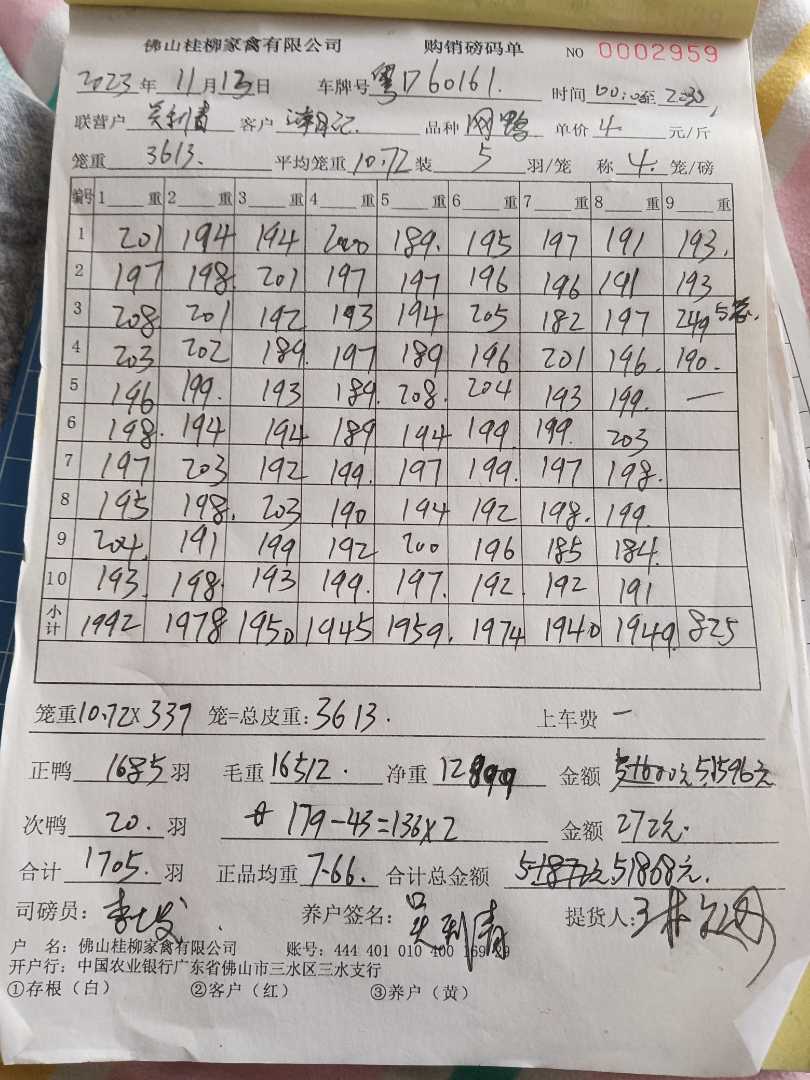 佛山桂柳家禽有限公司 购销磅码单 NO 0002959
2023年11月13日 车牌号粤D60161. 时间 至
联营户 客户 品种 单价 4 元/斤
笼重 3613. 平均笼重10.72装 5 羽/笼 称 4. 笼/磅
编号 1 重 2 重 3 重 4 重 5 重 6 重 7 重 8 重 9 重
1 201 194 194 200 189. 195 197 191 193.
2 197 198. 201 197 197 196 196 191 193
3 208. 201 192 193 194 205 182 197 249 5笼.
4 203 202 189. 197 189 196 201 196. 190.
5 196 199. 193 189. 208. 204 193 199. —
6 198. 194 194 189 194 199. 199. 203
7 197 203 192 199. 197 199. 197 198.
8 195 198. 203 190 194 192 198. 199.
9 204. 191 199 192 200 196 185 184.
10 193. 198. 193 199. 197. 192. 192 191
小计 1992 1978 1950 1945 1959. 1974 1940 1949. 825
笼重10.72X337 笼=总皮重:3613. 上车费 —
正鸭 1685羽 毛重16512. 净重12899 金额 51596元
次鸭 20. 羽 179-43=136×2 金额 272元.
合计 1705. 羽 正品均重 7.66. 合计总金额 51868元.
司磅员: 养户签名: 提货人:
户 名: 佛山桂柳家禽有限公司 账号: 444 401 010 400 169 29
开户行: 中国农业银行广东省佛山市三水区三水支行
①存根（白） ②客户（红） ③养户（黄）